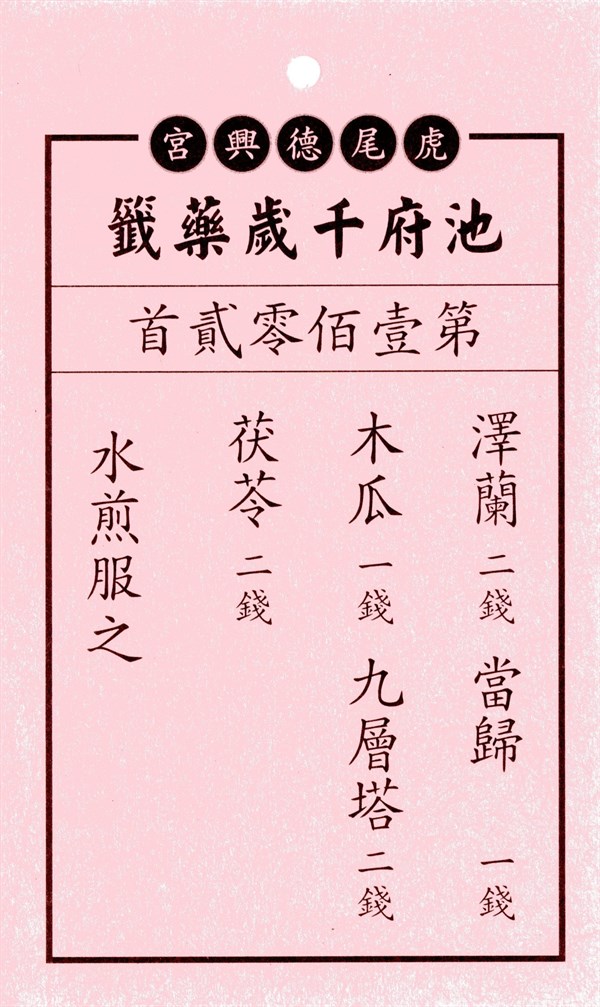 虎尾德興宮
池府千歲藥籤
第壹佰零貳首
澤蘭二錢 當歸 一錢
木瓜一錢 九層塔二錢
茯苓二錢
水煎服之